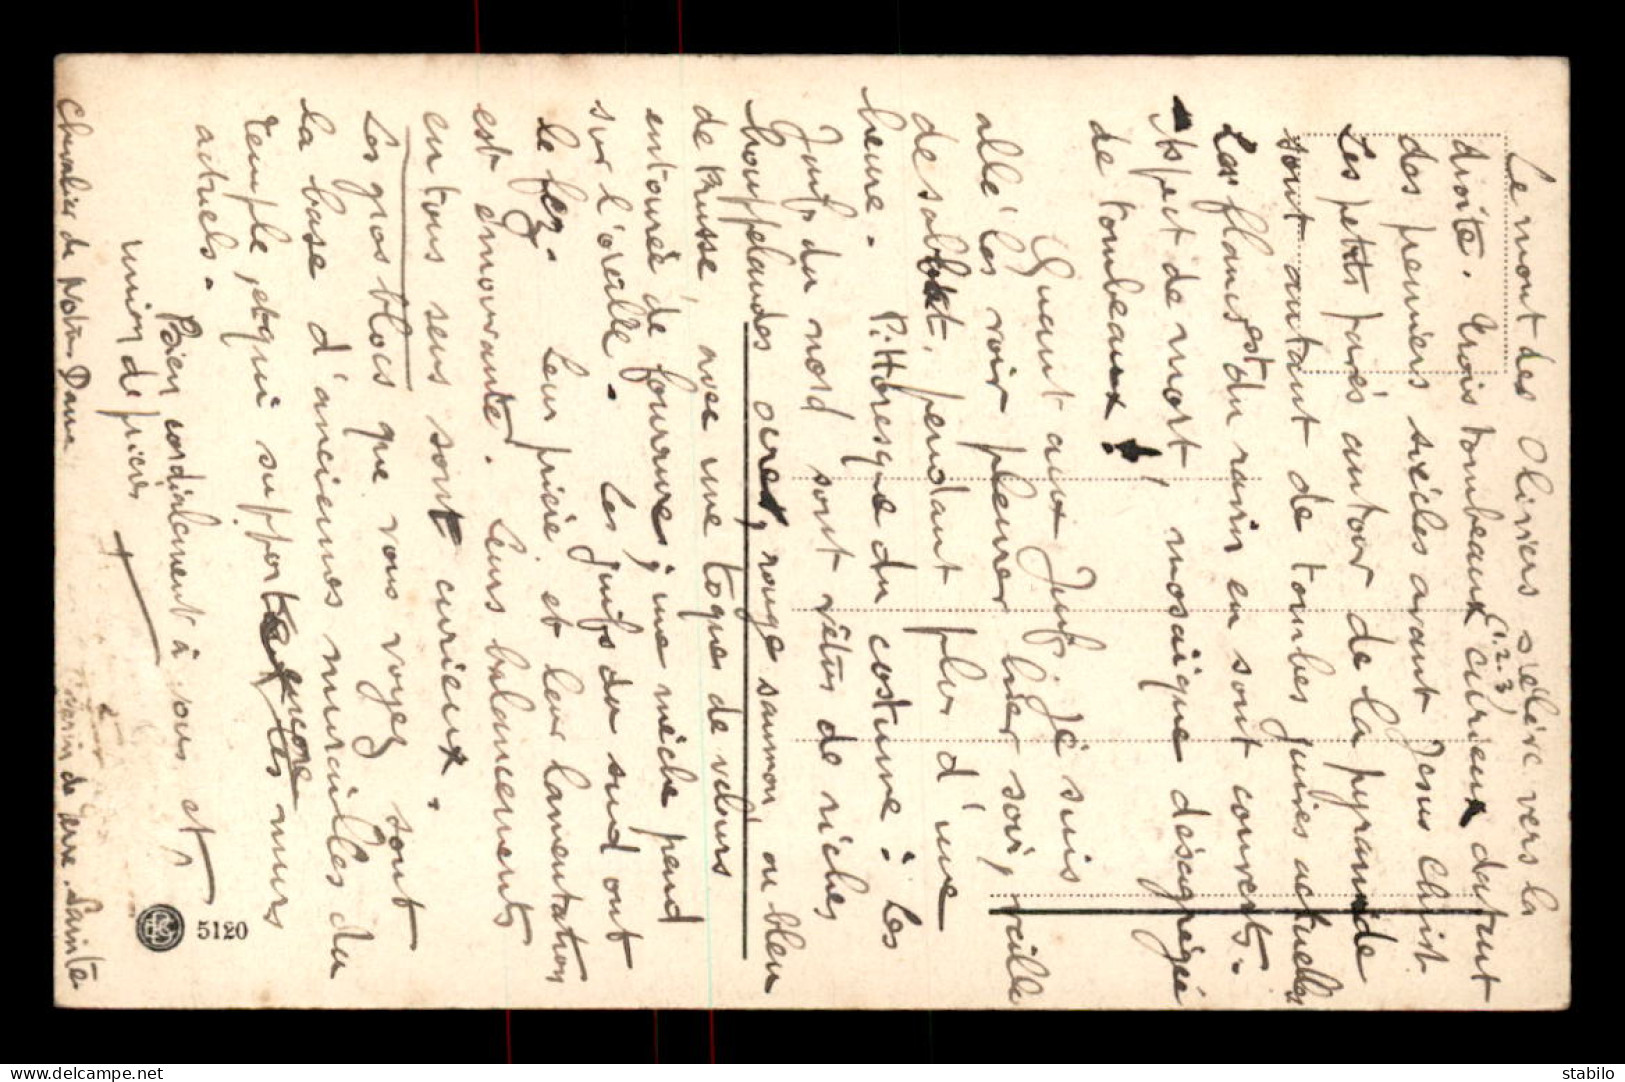 Le mont des Oliviers s'élève vers la
droite. Trois tombeaux curieux datant
(1.2.3)
des premiers siècles avant Jesus Christ
Les petits pavés autour de la pyramide
sont autant de tombes juives actuelles
Les flancs du ravin en sont couverts.
Aspect de mort, mosaïque désagrégée
de tombeaux !
Quant aux Juifs, je suis
allé les voir pleurer hier soir, veille
de sabbat, pendant plus d'une
heure. Pittoresque du costume : Les
Juifs du nord sont vêtus de riches
houppelandes ocres, rouge saumon, ou bleu
de Prusse, avec une toque de velours
entourée de fourrure ; une mèche pend
sur l'oreille. Les juifs du sud ont
le fez. Leur prière et leur lamentation
est émouvante. Leurs balancements
en tous sens sont curieux.
Les gros blocs que vous voyez sont
la base d'anciennes murailles du
temple, et qui supporte encore les murs
actuels.
Bien cordialement à vous et
union de prières
Chevalier de Notre Dame
de Terre Sainte
5120
delcampe.net
stabilo